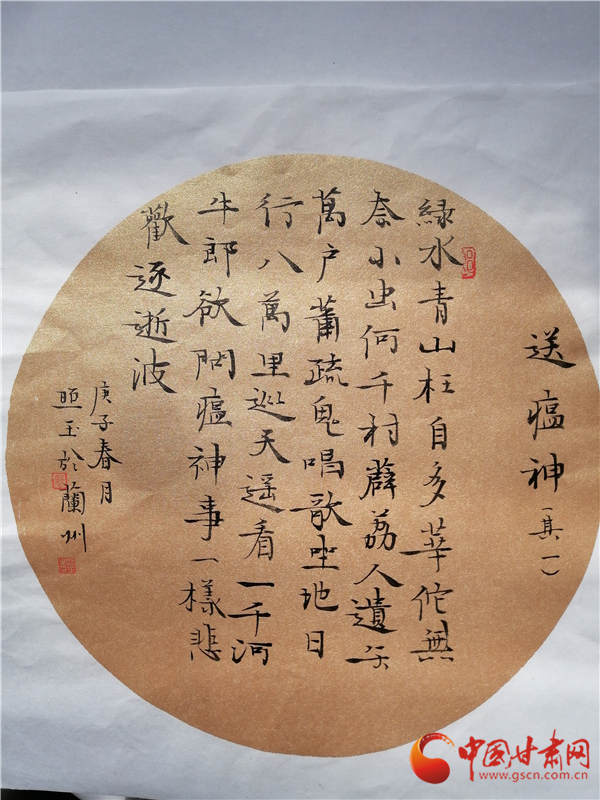 送瘟神（其一）
緑水青山枉自多華佗無
奈小虫何千村薜荔人遺矢
萬户蕭疏鬼唱歌坐地日
行八萬里巡天遥看一千河
牛郎欲問瘟神事一樣悲
歡逐逝波
庚子春月
照玉於蘭州
中国甘肃网
www.gscn.com.cn